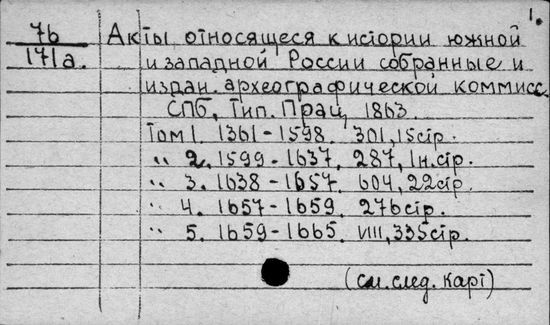 1.
76
171а.
Акты, относящеся к истории южной
и западной России собранные и
издан. археографической коммисс.
СПб, Тип. Прац, 1863.
Том 1. 1361-1598. 301, 15 стр.
" 2. 1599-1637. 287, 1н. стр.
" 3. 1638-1657. 604, 22 стр.
" 4. 1657-1659. 276 стр.
" 5. 1659-1665. VIII, 335 стр.
(см. след. карт)